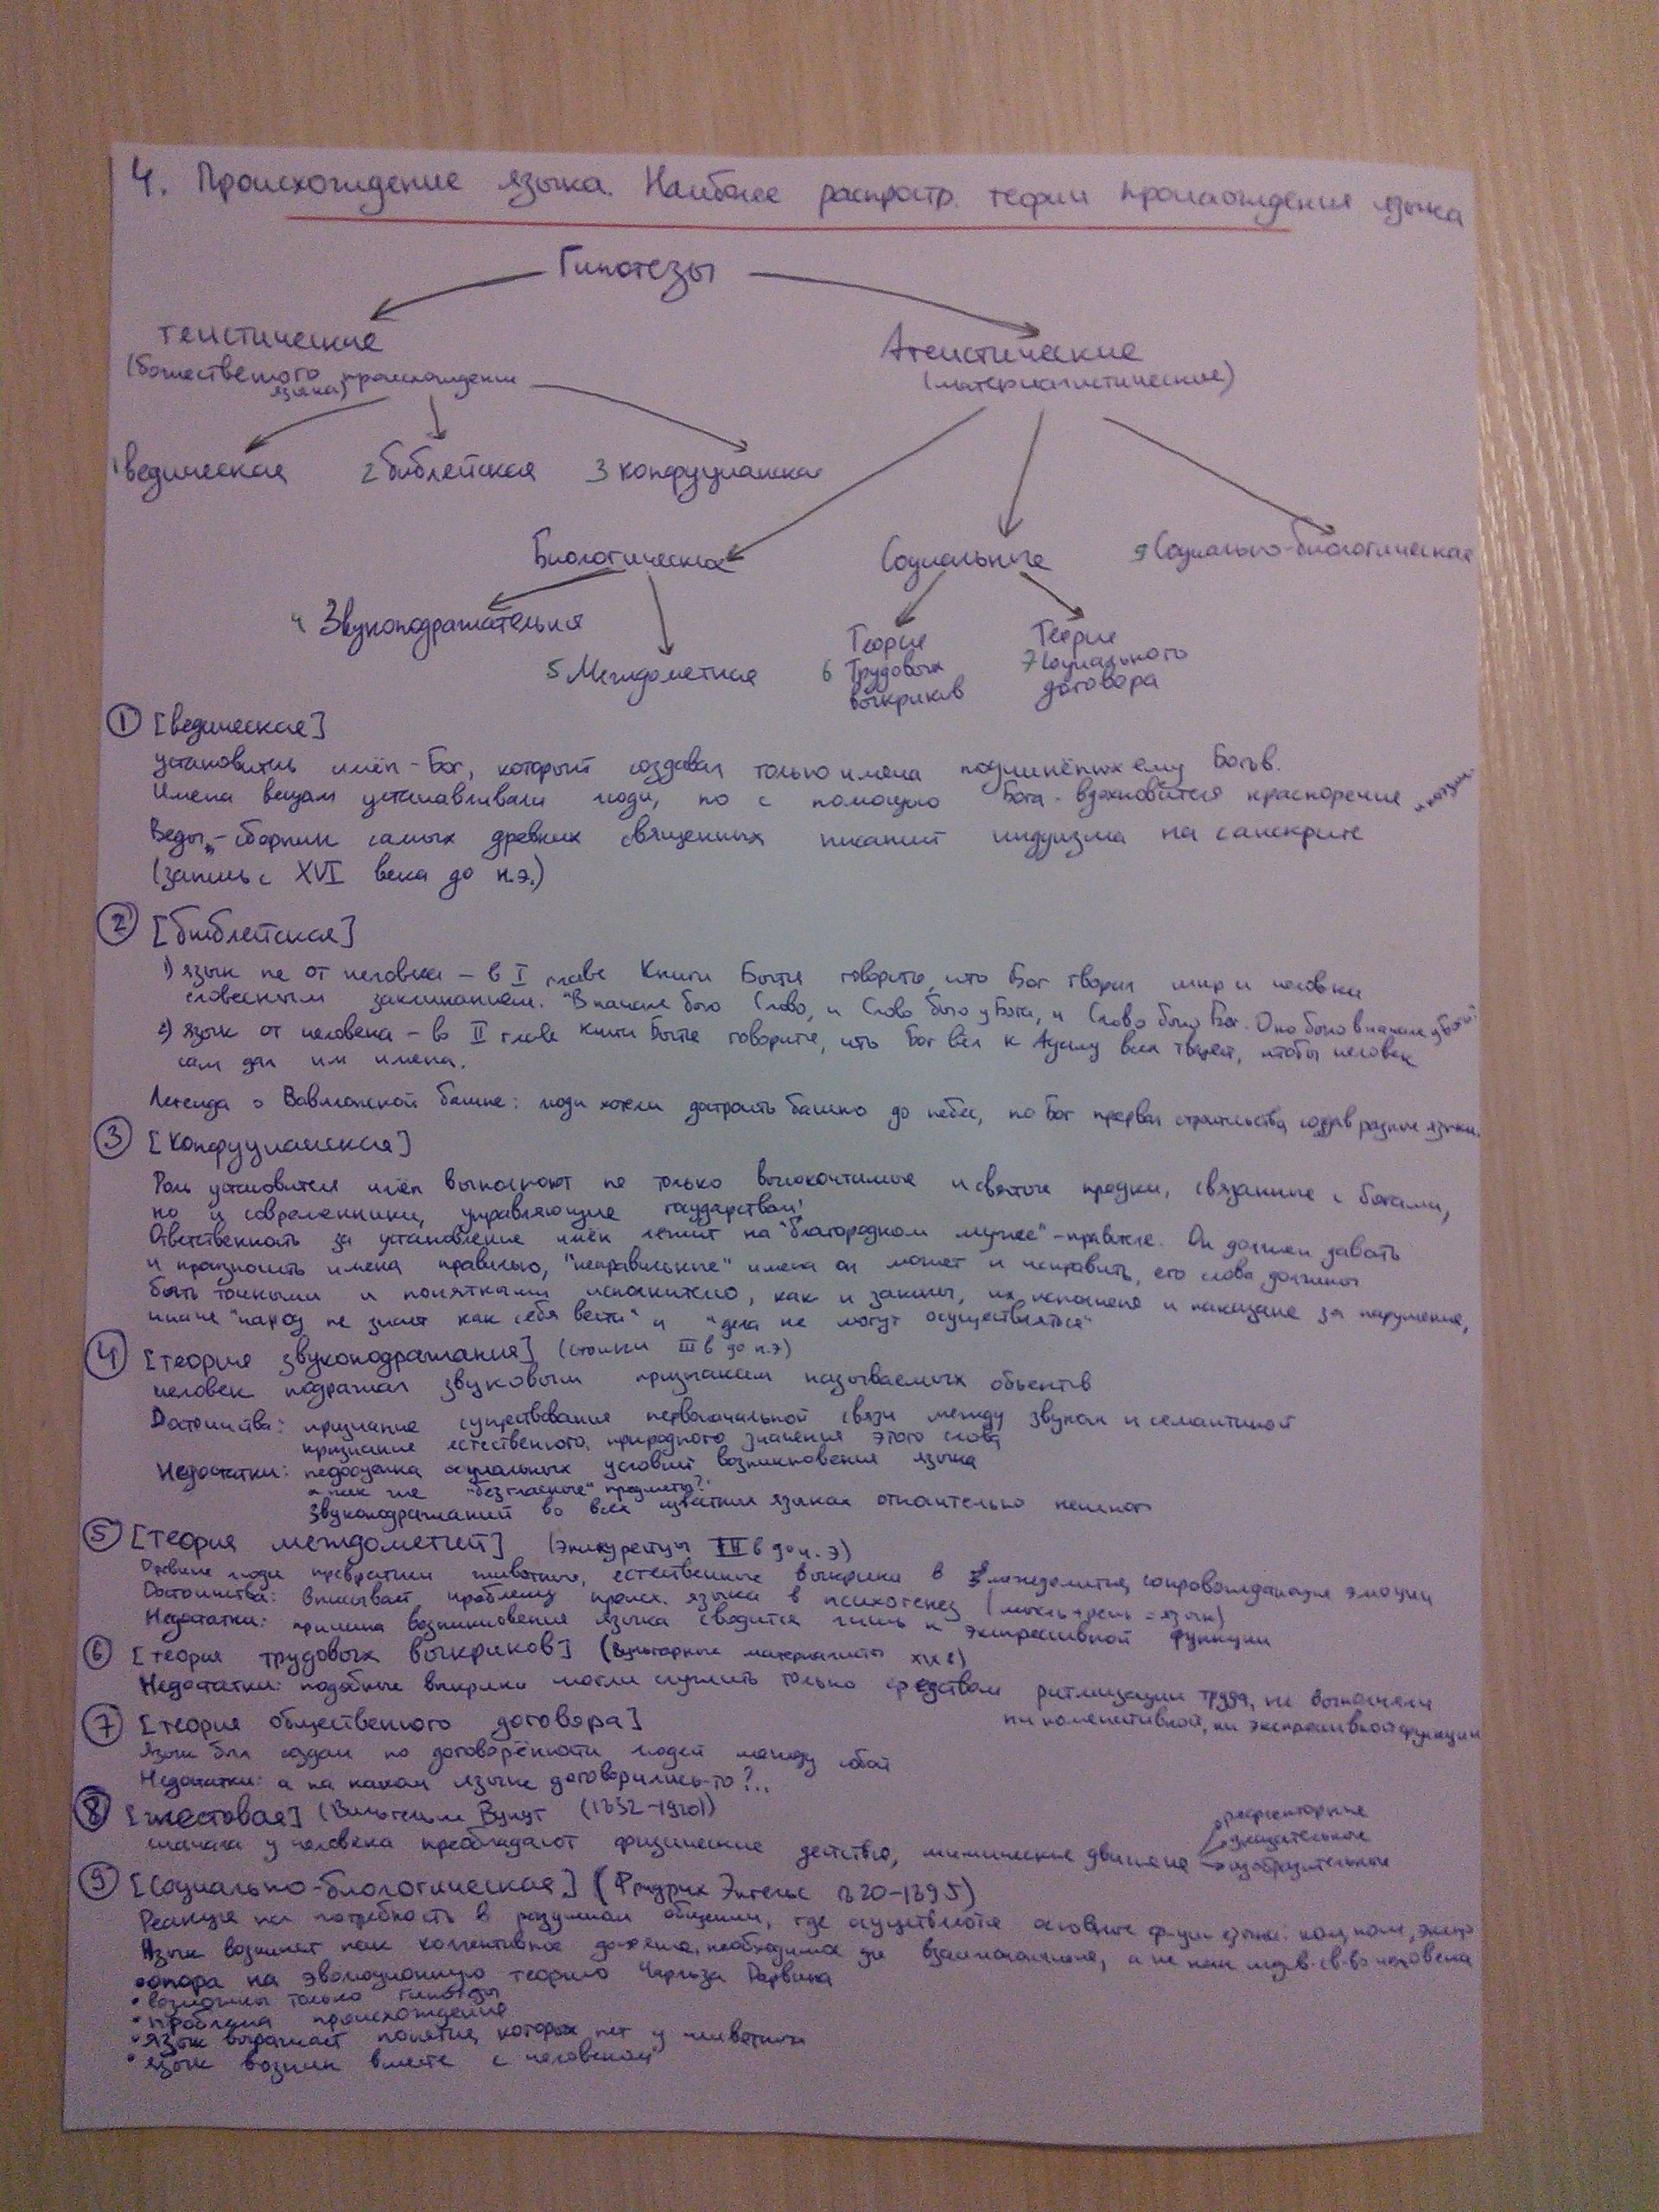 4. Происхождение языка. Наиболее распростр. теории происхождения языка
Гипотезы
теистические
Атеистические
(божественного происхождения
языка)
(материалистические)
1 ведическая 2 библейская 3 конфуцианская
Биологические Социальные 9 Социально-биологическая
4 Звукоподражательная
5 Междометная
Теория
6 Трудовых
выкриков
Теория
7 социального
договора
① [ведическая]
установитель имён - Бог, который создавал только имена подчинённых ему Богов.
Имена вещам устанавливали люди, но с помощью Бога - вдохновителя красноречия
Веды - сборник самых древних священных писаний индуизма на санскрите
(запись с XVI века до н.э.)
② [библейская]
1) язык не от человека - в I главе Книги Бытия говорится, что Бог творил мир и человека
словесным заклинанием. "В начале было Слово, и Слово было у Бога, и Слово было Бог. Оно было в начале у Бога"
2) язык от человека - во II главе Книги Бытия говорится, что Бог вёл к Адаму всех тварей, чтобы человек
сам дал им имена.
Легенда о Вавилонской башне: люди хотели достроить башню до небес, но Бог прервал строительство, создав разные языки.
③ [конфуцианская]
Роль установителя имён выполняют не только высокочтимые и святые предки, связанные с богами,
но и современники, управляющие государством!
Ответственность за установление имён лежит на "благородном муже" - правителе. Он должен давать
и произносить имена правильно, "неправильные" имена он может и исправить, его слова должны
быть точными и понятными исполнителю, как и законы, их исполнение и наказание за нарушение,
иначе "народ не знает как себя вести" и "дела не могут осуществляться"
④ [теория звукоподражания] (стоики III в до н.э)
человек подражал звуковым признакам называемых объектов
Достоинства: признание существования первоначальной связи между звуком и семантикой
признание естественного, природного значения этого слова
Недостатки: недооценка социальных условий возникновения языка
а как же "безгласные" предметы?
звукоподражаний во всех языках относительно немного
⑤ [теория междометий] (эпикурейцы III в до н. э)
Древние люди превратили животные, естественные выкрики в междометия, сопровождающие эмоции
Достоинства: вписывает проблему происх. языка в психогенез (мысль + речь = язык)
Недостатки: причина возникновения языка сводится лишь к экспрессивной функции
⑥ [теория трудовых выкриков] (вульгарные материалисты XIX в)
Недостатки: подобные выкрики могли служить только средством ритмизации труда, не выполняли
ни номинативной, ни экспрессивной функции
⑦ [теория общественного договора]
Язык был создан по договорённости людей между собой
Недостатки: а на каком языке договорились-то?..
⑧ [жестовая] (Вильгельм Вундт (1832-1920))
сначала у человека преобладают физические действия, мимические движения
рефлекторные
указательные
изобразительные
⑨ [Социально-биологическая] (Фридрих Энгельс 1820-1895)
Реакция на потребность в разумном общении, где осуществляются основные функции языка: ком, ном, экспр
Язык возникает как коллективное, необходимое для взаимопонимания, а не как индив. св-во человека
• опора на эволюционную теорию Чарльза Дарвина
• возможны только гипотезы
• проблема происхождения
• язык выражает понятия, которых нет у животных
• язык возник вместе с человеком